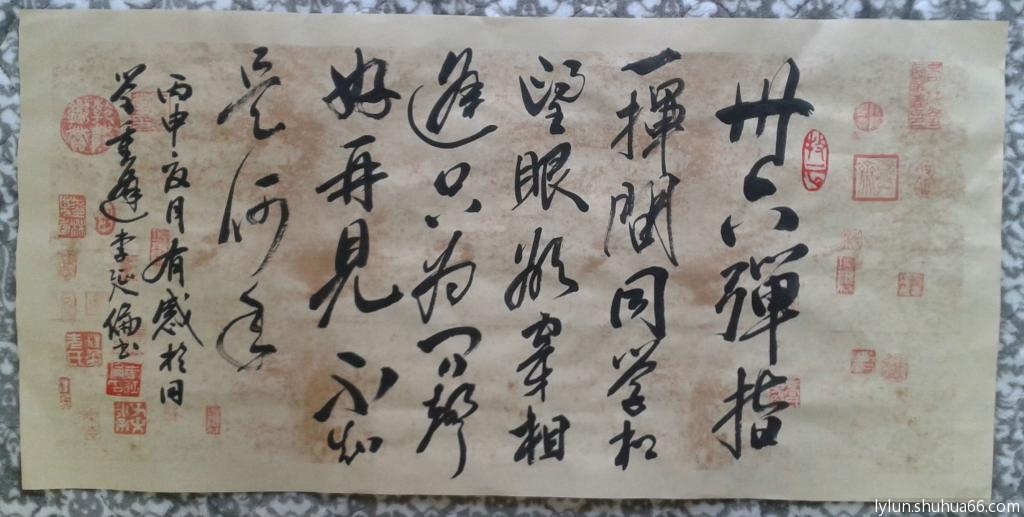 卅六彈指
一揮間同學相
望眼欲穿相
逢只为问聲
好再見不知
是何年
丙申夏月有感於同
學重逢李延倫书
lylun.shuhua66.com